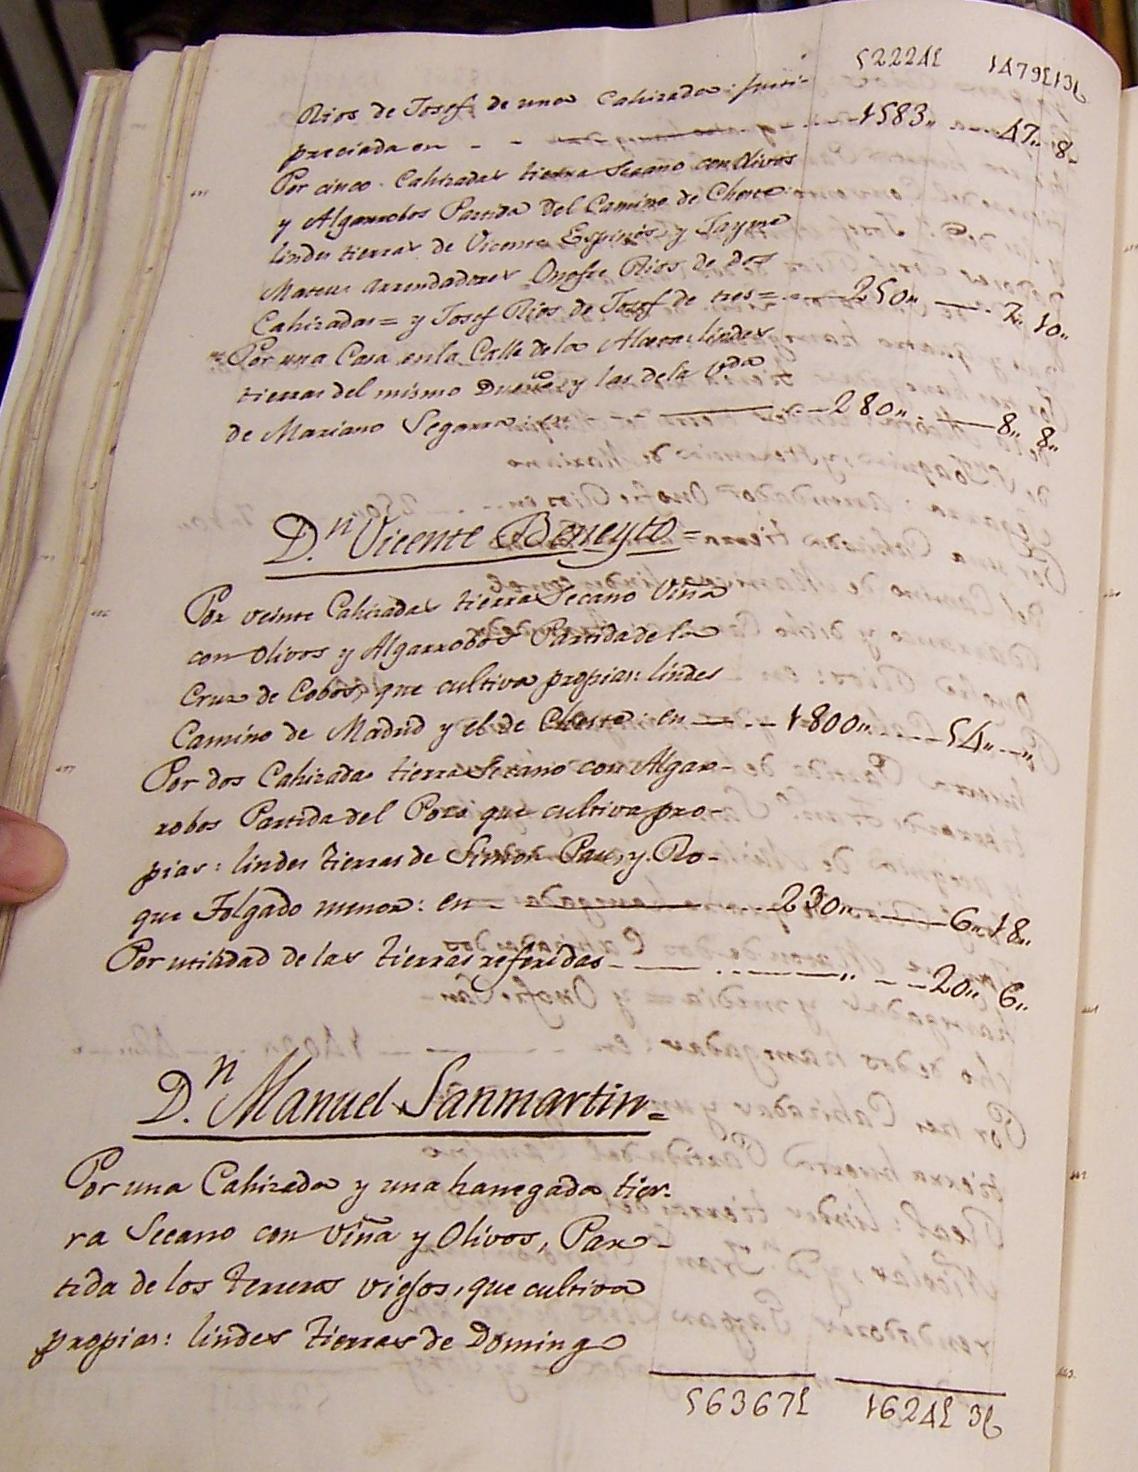 52224£ 1479£13
Rios de Josef de una Cahizada: justi-
preciada en - - 1583,, 47,, 8,,
Por cinco Cahizadas tierra Secano con Olivos
y Algarrobos Partida del Camino de Cheste
lindes tierras de Vicente Espinós, y Jayme
Mateu: Arrendadores Onofre Rios de dos
Cahizadas= y Josef Rios de Josef de tres= 250,, 7,, 10,,
Por una Casa en la Calle de la lindes
tierras del mismo Dueño y las de la V.da
de Mariano Segarra: en 280,, 8,, 8,,
D.n Vicente Beneyto=
Por veinte Cahizadas tierra Secano Viña
con Olivos y Algarrobos Partida de la
Cruz de Cobos, que cultiva propias: lindes
Camino de Madrid y el de Cheste: en 1800,, 54,, - ,,
Por dos Cahizadas tierra Secano con Algar-
robos Partida del Pozo que cultiva pro-
pias: lindes tierras de Simon Pau, y Ro-
que Folgado menor: en= 230,, 6,, 18,,
Por utilidad de las tierras referidas ,, 20,, 6,,
D.n Manuel Sanmartin=
Por una Cahizada y una hanegada tier-
ra Secano con Viña y Olivos, Par-
tida de los terreros viejos, que cultiva
propias: lindes tierras de Domingo
56367£ 1624£ 3